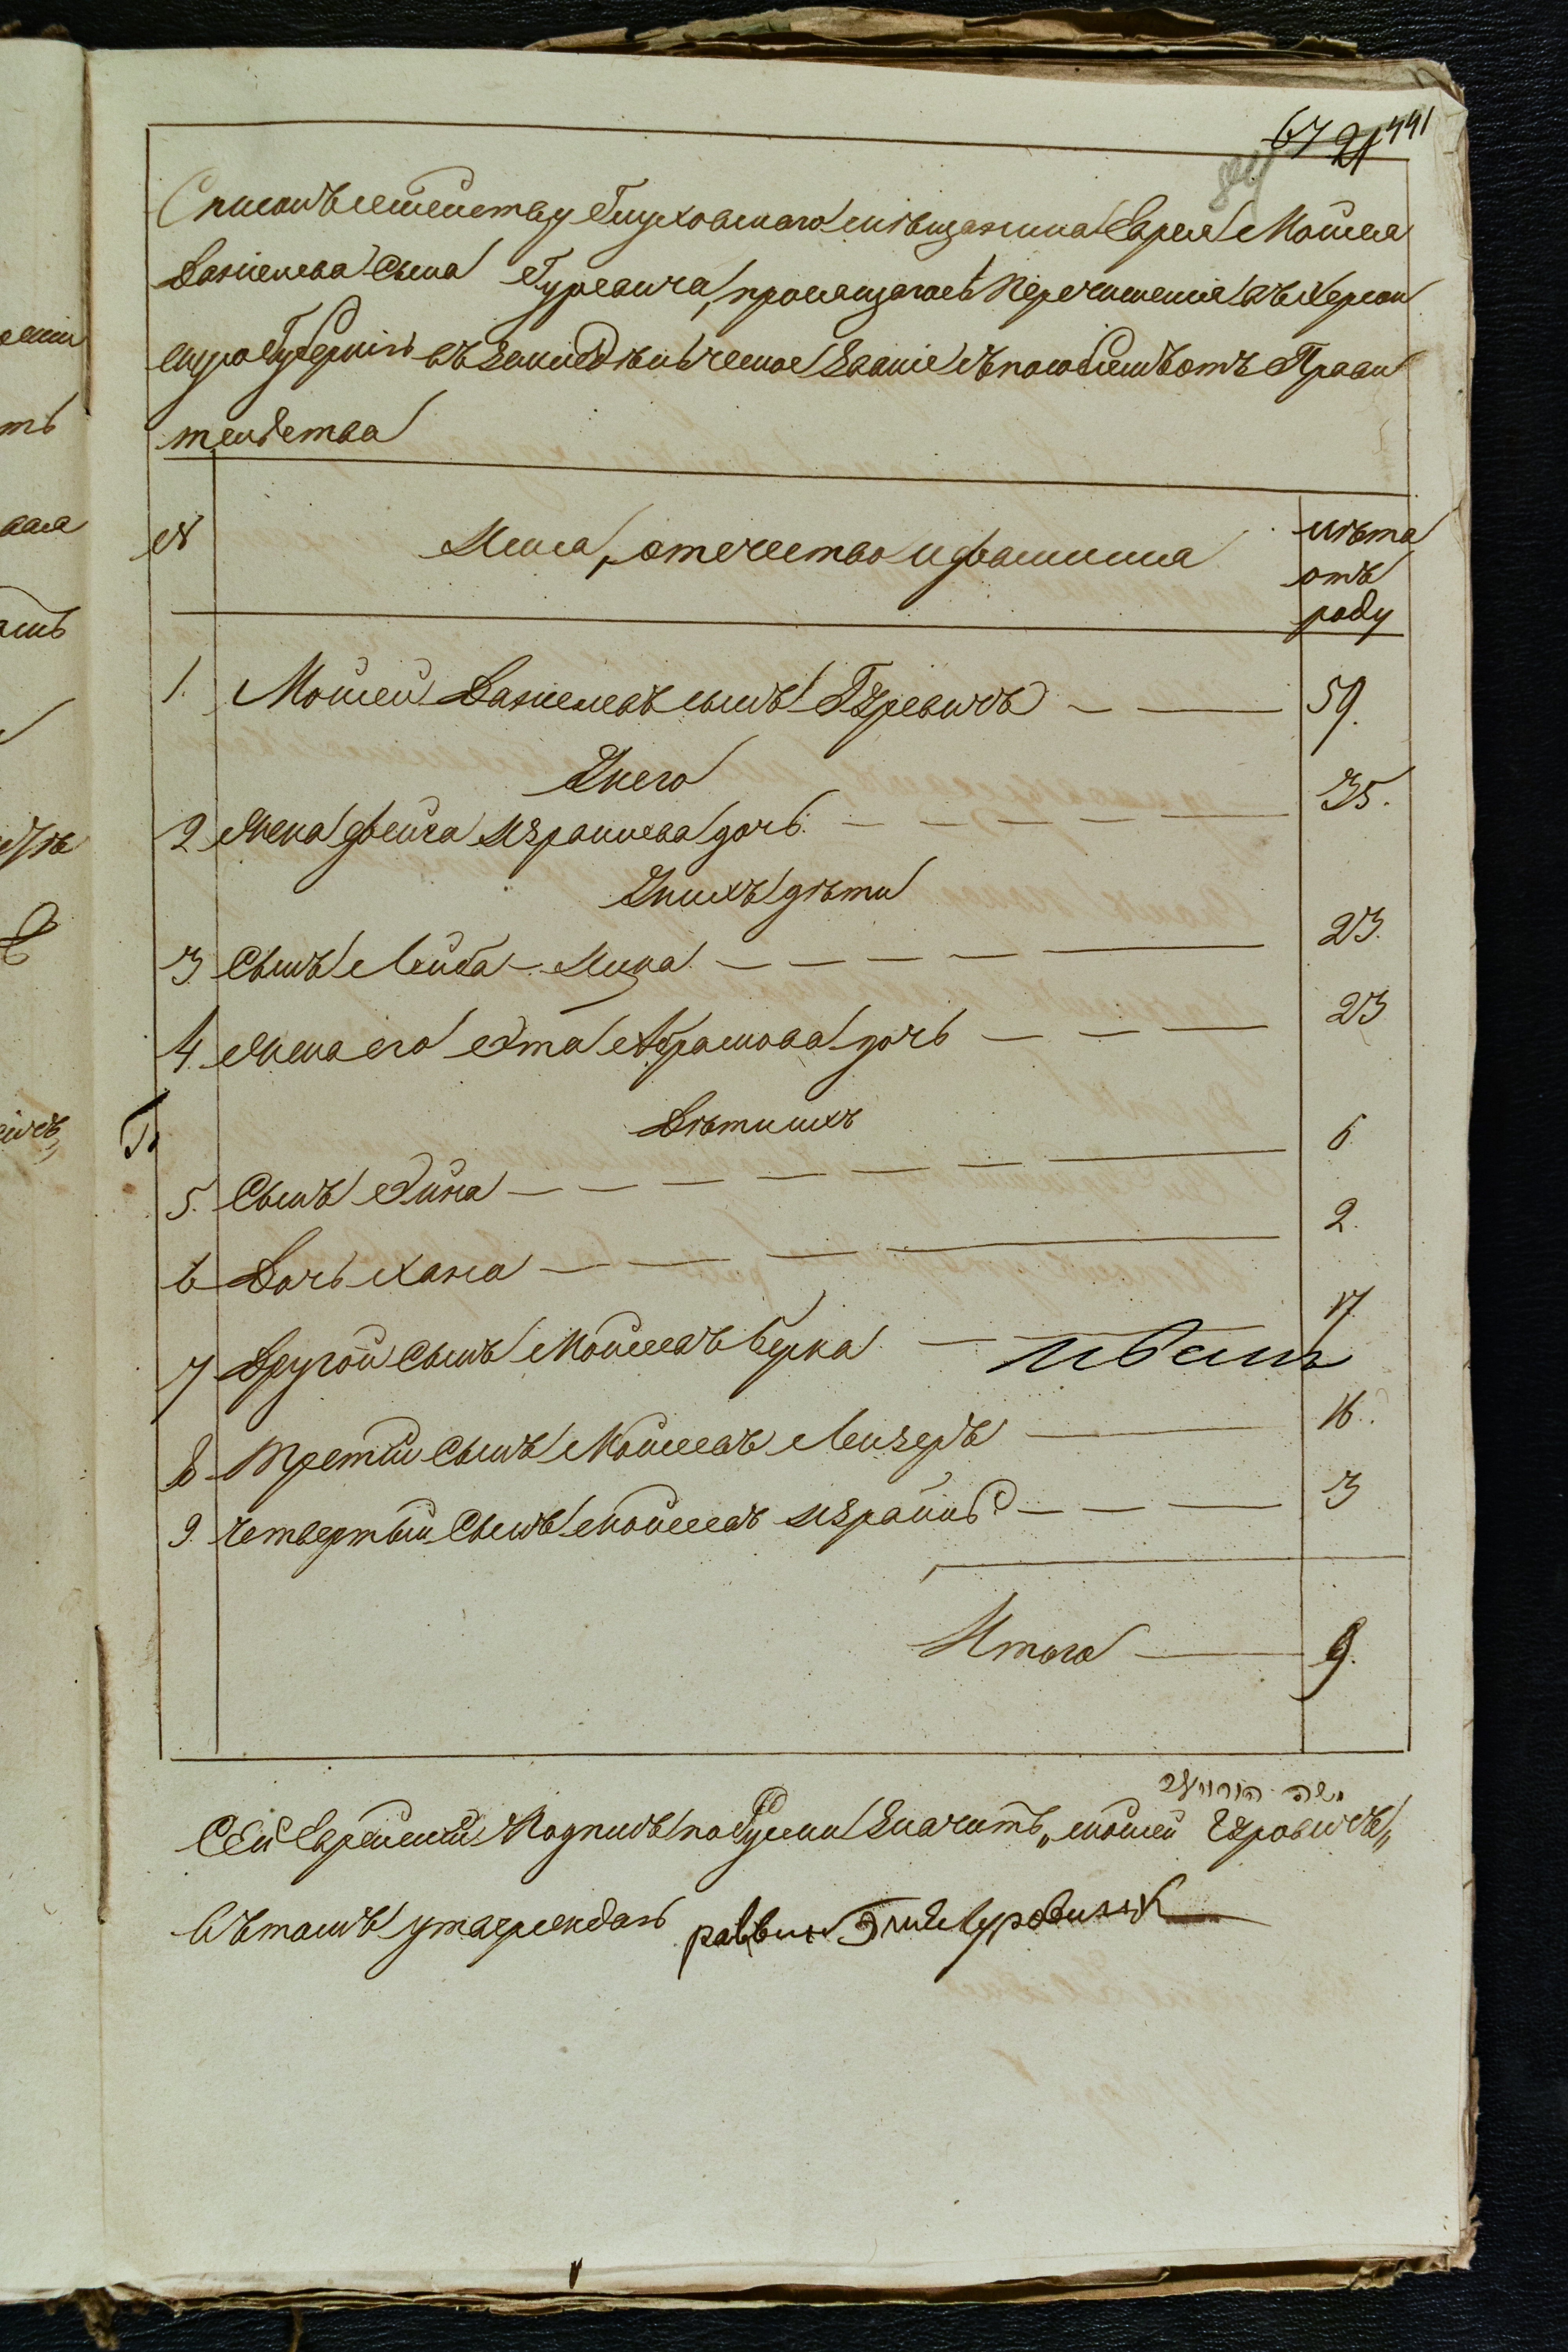 67 21 441
Списокъ семейству Глуховскаго мѣщанина Еврея Мовшея
Даніелева сына Гуревича, просящагось перечисленія въ Херсон
скую Губернію въ земледѣльческое званіе съ пособіемъ отъ Прави
тельства
№ Имена, отечество и фамилія лѣта отъ роду
1. Мовшей Даніелевъ сынъ Гуревичъ 59.
У него
2 жена Фейга Израилева дочь 35.
У нихъ дѣти
3 Сынъ Лейба-Ицка 23.
4. жена его Эта Абрамова дочь 23
Дѣти ихъ
5. Сынъ 6
6 Дочь Хана 2.
7 Другой сынъ Мовшеевъ Берка 17
8 Третій сынъ Мовшеевъ Лейзеръ 16.
9. Четвертый сынъ Мовшеевъ Израиль 3
Итого 9.
Сей Еврейскій подпись по Руски значитъ „Мовшей Гуровичъ„
Въ томъ утверждаю раввинъ